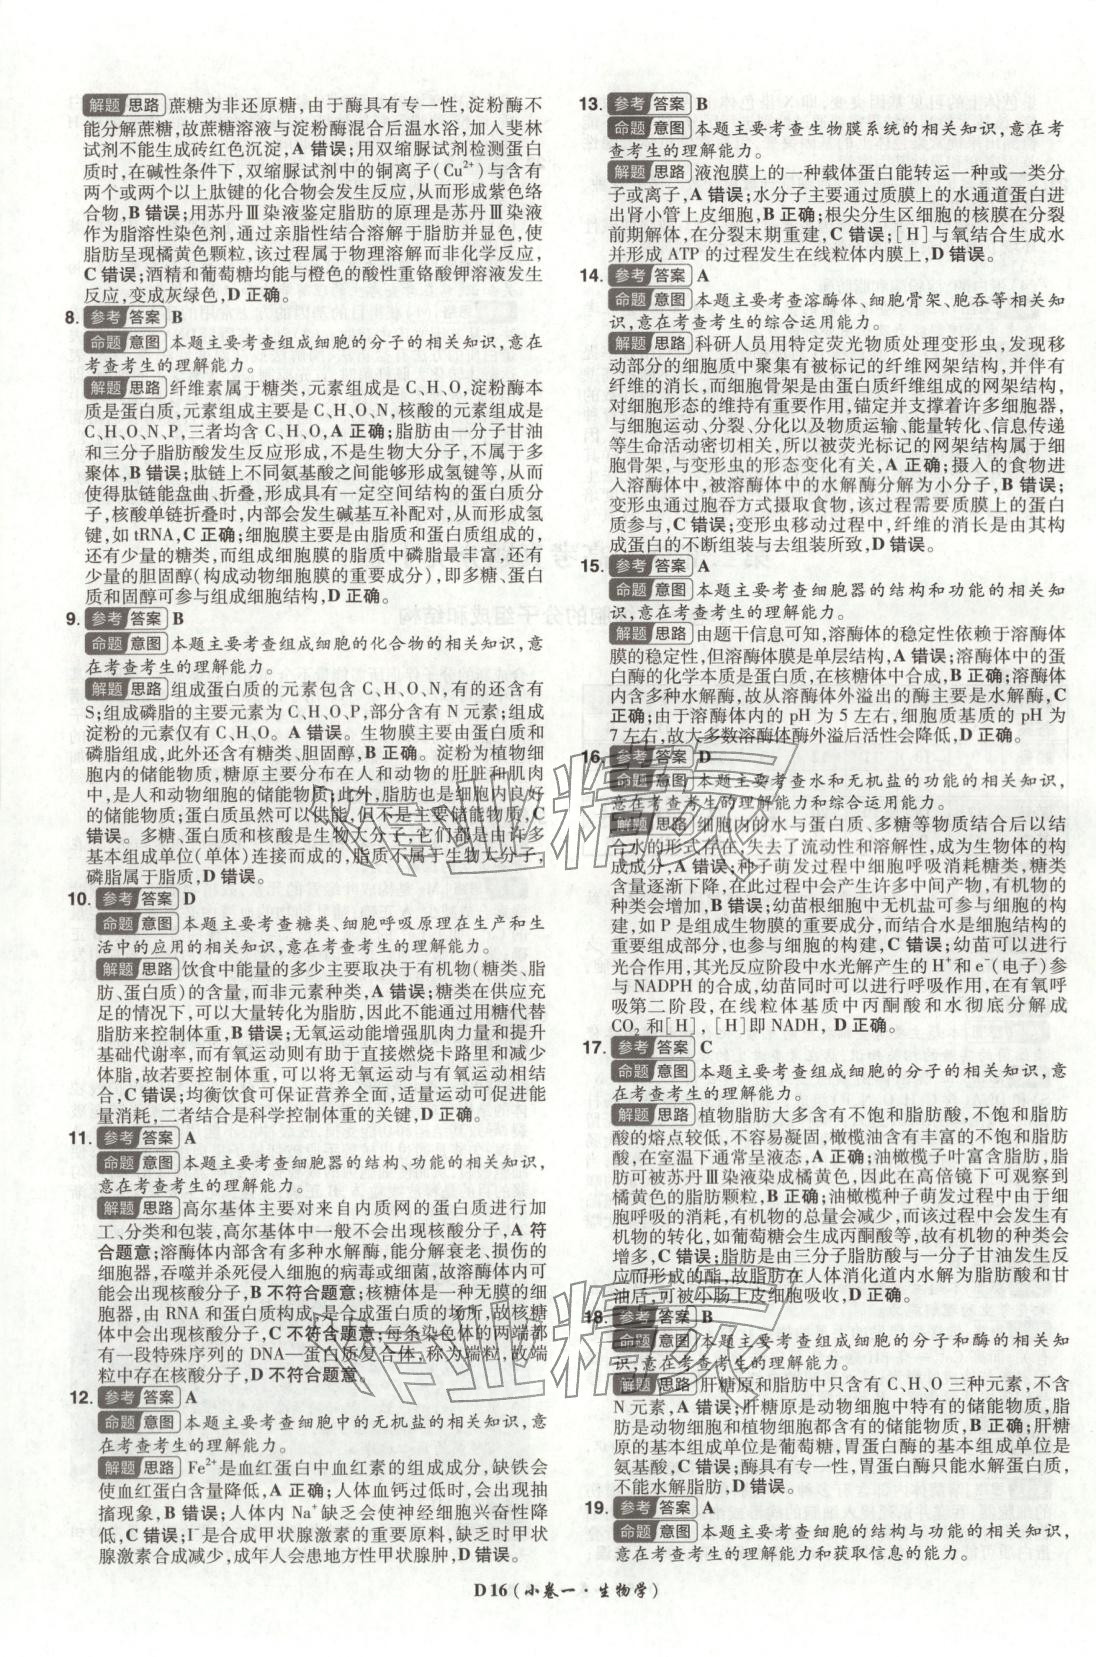 解题 思路 蔗糖为非还原糖,由于酶具有专一性,淀粉酶不
能分解蔗糖,故蔗糖溶液与淀粉酶混合后温水浴,加入斐林
试剂不能生成砖红色沉淀,A 错误;用双缩脲试剂检测蛋白
质时,在碱性条件下,双缩脲试剂中的铜离子(Cu²⁺)与含有
两个或两个以上肽键的化合物会发生反应,从而形成紫色络
合物,B 错误;用苏丹Ⅲ染液鉴定脂肪的原理是苏丹Ⅲ染液
作为脂溶性染色剂,通过亲脂性结合溶解于脂肪并显色,使
脂肪呈现橘黄色颗粒,该过程属于物理溶解而非化学反应,
C 错误;酒精和葡萄糖均能与橙色的酸性重铬酸钾溶液发生
反应,变成灰绿色,D 正确。
8. 参考 答案 B
命题 意图 本题主要考查组成细胞的分子的相关知识,意
在考查考生的理解能力。
解题 思路 纤维素属于糖类,元素组成是 C、H、O,淀粉酶本
质是蛋白质,元素组成主要是 C、H、O、N,核酸的元素组成是
C、H、O、N、P,三者均含 C、H、O,A 正确;脂肪由一分子甘油
和三分子脂肪酸发生反应形成,不是生物大分子,不属于多
聚体,B 错误;肽链上不同氨基酸之间能够形成氢键等,从而
使得肽链能盘曲、折叠,形成具有一定空间结构的蛋白质分
子,核酸单链折叠时,内部会发生碱基互补配对,从而形成氢
键,如 tRNA,C 正确;细胞膜主要是由脂质和蛋白质组成的,
还有少量的糖类,而组成细胞膜的脂质中磷脂最丰富,还有
少量的胆固醇(构成动物细胞膜的重要成分),即多糖、蛋白
质和固醇可参与组成细胞结构,D 正确。
9. 参考 答案 B
命题 意图 本题主要考查组成细胞的化合物的相关知识,意
在考查考生的理解能力。
解题 思路 组成蛋白质的元素包含 C、H、O、N,有的还含有
S;组成磷脂的主要元素为 C、H、O、P,部分含有 N 元素;组成
淀粉的元素仅有 C、H、O。A 错误。生物膜主要由蛋白质和
磷脂组成,此外还含有糖类、胆固醇,B 正确。淀粉为植物细
胞内的储能物质,糖原主要分布在人和动物的肝脏和肌肉
中,是人和动物细胞的储能物质;此外,脂肪也是细胞内良好
的储能物质;蛋白质虽然可以供能,但不是主要储能物质,C
错误。多糖、蛋白质和核酸是生物大分子,它们都是由许多
基本组成单位(单体)连接而成的,脂质不属于生物大分子,
磷脂属于脂质,D 错误。
10. 参考 答案 D
命题 意图 本题主要考查糖类、细胞呼吸原理在生产和生
活中的应用的相关知识,意在考查考生的理解能力。
解题 思路 饮食中能量的多少主要取决于有机物(糖类、脂
肪、蛋白质)的含量,而非元素种类,A 错误;糖类在供应充
足的情况下,可以大量转化为脂肪,因此不能通过用糖代替
脂肪来控制体重,B 错误;无氧运动能增强肌肉力量和提升
基础代谢率,而有氧运动则有助于直接燃烧卡路里和减少
体脂,故若要控制体重,可以将无氧运动与有氧运动相结
合,C 错误;均衡饮食可保证营养全面,适量运动可促进能
量消耗,二者结合是科学控制体重的关键,D 正确。
11. 参考 答案 A
命题 意图 本题主要考查细胞器的结构、功能的相关知识,
意在考查考生的理解能力。
解题 思路 高尔基体主要对来自内质网的蛋白质进行加
工、分类和包装,高尔基体中一般不会出现核酸分子,A 符
合题意;溶酶体内部含有多种水解酶,能分解衰老、损伤的
细胞器,吞噬并杀死侵入细胞的病毒或细菌,故溶酶体内可
能会出现核酸分子,B 不符合题意;核糖体是一种无膜的细
胞器,由 RNA 和蛋白质构成,是合成蛋白质的场所,故核糖
体中会出现核酸分子,C 不符合题意;每条染色体的两端都
有一段特殊序列的 DNA—蛋白质复合体,称为端粒,故端
粒中存在核酸分子,D 不符合题意。
12. 参考 答案 A
命题 意图 本题主要考查细胞中的无机盐的相关知识,意
在考查考生的理解能力。
解题 思路 Fe²⁺是血红蛋白中血红素的组成成分,缺铁会
使血红蛋白含量降低,A 正确;人体血钙过低时,会出现抽
搐现象,B 错误;人体内 Na⁺缺乏会使神经细胞兴奋性降
低,C 错误;I⁻是合成甲状腺激素的重要原料,缺乏时甲状
腺激素合成减少,成年人会患地方性甲状腺肿,D 错误。
13. 参考 答案 B
命题 意图 本题主要考查生物膜系统的相关知识,意在考
查考生的理解能力。
解题 思路 液泡膜上的一种载体蛋白能转运一种或一类分
子或离子,A 错误;水分子主要通过质膜上的水通道蛋白进
出肾小管上皮细胞,B 正确;根尖分生区细胞的核膜在分裂
前期解体,在分裂末期重建,C 错误;[H]与氧结合生成水
并形成 ATP 的过程发生在线粒体内膜上,D 错误。
14. 参考 答案 A
命题 意图 本题主要考查溶酶体、细胞骨架、胞吞等相关知
识,意在考查考生的综合运用能力。
解题 思路 科研人员用特定荧光物质处理变形虫,发现移
动部分的细胞质中聚集有被标记的纤维网架结构,并伴有
纤维的消长,而细胞骨架是由蛋白质纤维组成的网架结构,
对细胞形态的维持有重要作用,锚定并支撑着许多细胞器,
与细胞运动、分裂、分化以及物质运输、能量转化、信息传递
等生命活动密切相关,所以被荧光标记的网架结构属于细
胞骨架,与变形虫的形态变化有关,A 正确;摄入的食物进
入溶酶体中,被溶酶体中的水解酶分解为小分子,B 错误;
变形虫通过胞吞方式摄取食物,该过程需要质膜上的蛋白
质参与,C 错误;变形虫移动过程中,纤维的消长是由其构
成蛋白的不断组装与去组装所致,D 错误。
15. 参考 答案 A
命题 意图 本题主要考查细胞器的结构和功能的相关知
识,意在考查考生的理解能力。
解题 思路 由题干信息可知,溶酶体的稳定性依赖于溶酶体
膜的稳定性,但溶酶体膜是单层结构,A 错误;溶酶体中的蛋
白酶的化学本质是蛋白质,在核糖体中合成,B 正确;溶酶体
内含多种水解酶,故从溶酶体外溢出的酶主要是水解酶,C
正确;由于溶酶体内的 pH 为 5 左右,细胞质基质的 pH 为
7 左右,故大多数溶酶体酶外溢后活性会降低,D 正确。
16. 参考 答案 D
命题 意图 本题主要考查水和无机盐的功能的相关知识,
意在考查考生的理解能力和综合运用能力。
解题 思路 细胞内的水与蛋白质、多糖等物质结合后以结
合水的形式存在,失去了流动性和溶解性,成为生物体的构
成成分,A 错误;种子萌发过程中细胞呼吸消耗糖类,糖类
含量逐渐下降,在此过程中会产生许多中间产物,有机物的
种类会增加,B 错误;幼苗根细胞中无机盐可参与细胞的构
建,如 P 是组成生物膜的重要成分,而结合水是细胞结构的
重要组成部分,也参与细胞的构建,C 错误;幼苗可以进行
光合作用,其光反应阶段中水光解产生的 H⁺和 e⁻(电子)参
与 NADPH 的合成,幼苗同时可以进行呼吸作用,在有氧呼
吸第二阶段,在线粒体基质中丙酮酸和水彻底分解成
CO₂ 和[H],[H]即 NADH,D 正确。
17. 参考 答案 C
命题 意图 本题主要考查组成细胞的分子的相关知识,意
在考查考生的理解能力。
解题 思路 植物脂肪大多含有不饱和脂肪酸,不饱和脂肪
酸的熔点较低,不容易凝固,橄榄油含有丰富的不饱和脂肪
酸,在室温下通常呈液态,A 正确;油橄榄子叶富含脂肪,脂
肪可被苏丹Ⅲ染液染成橘黄色,因此在高倍镜下可观察到
橘黄色的脂肪颗粒,B 正确;油橄榄种子萌发过程中由于细
胞呼吸的消耗,有机物的总量会减少,而该过程中会发生有
机物的转化,如葡萄糖会生成丙酮酸等,故有机物的种类会
增多,C 错误;脂肪是由三分子脂肪酸与一分子甘油发生反
应而形成的酯,故脂肪在人体消化道内水解为脂肪酸和甘
油后,可被小肠上皮细胞吸收,D 正确。
18. 参考 答案 B
命题 意图 本题主要考查组成细胞的分子和酶的相关知
识,意在考查考生的理解能力。
解题 思路 肝糖原和脂肪中只含有 C、H、O 三种元素,不含
N 元素,A 错误;肝糖原是动物细胞中特有的储能物质,脂
肪是动物细胞和植物细胞都含有的储能物质,B 正确;肝糖
原的基本组成单位是葡萄糖,胃蛋白酶的基本组成单位是
氨基酸,C 错误;酶具有专一性,胃蛋白酶只能水解蛋白质,
不能水解脂肪,D 错误。
19. 参考 答案 A
命题 意图 本题主要考查细胞的结构与功能的相关知识,
意在考查考生的理解能力和获取信息的能力。
D16(小卷一·生物学)
作业精灵
作业精灵